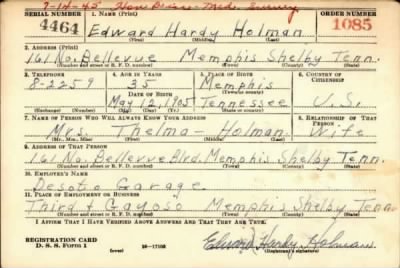 7-14-45
SERIAL NUMBER 1. NAME (Print) ORDER NUMBER
4464 Edward Hardy Holman 1085
(First) (Middle) (Last)
2. ADDRESS (Print)
161 No. Bellevue Memphis Shelby Tenn.
(Number and street or R. F. D. number) (Town) (County) (State)
3. TELEPHONE 4. AGE IN YEARS 5. PLACE OF BIRTH 6. COUNTRY OF CITIZENSHIP
8-2259 35 Memphis
DATE OF BIRTH (Town or county)
May 12, 1905 Tennessee U.S.
(Exchange) (Number) (Mo.) (Day) (Yr.) (State or country)
7. NAME OF PERSON WHO WILL ALWAYS KNOW YOUR ADDRESS 8. RELATIONSHIP OF THAT PERSON
Mrs. Thelma - Holman Wife
(Mr., Mrs., Miss) (First) (Middle) (Last)
9. ADDRESS OF THAT PERSON
161 No. Bellevue Blvd. Memphis Shelby Tenn.
(Number and street or R. F. D. number) (Town) (County) (State)
10. EMPLOYER'S NAME
Desoto Garage
11. PLACE OF EMPLOYMENT OR BUSINESS
Third & Gayoso Memphis Shelby Tenn
(Number and street or R. F. D. number) (Town) (County) (State)
I AFFIRM THAT I HAVE VERIFIED ABOVE ANSWERS AND THAT THEY ARE TRUE.
REGISTRATION CARD
D. S. S. Form 1 (over) 16-17105 Edward Hardy Holman
(Registrant's signature)